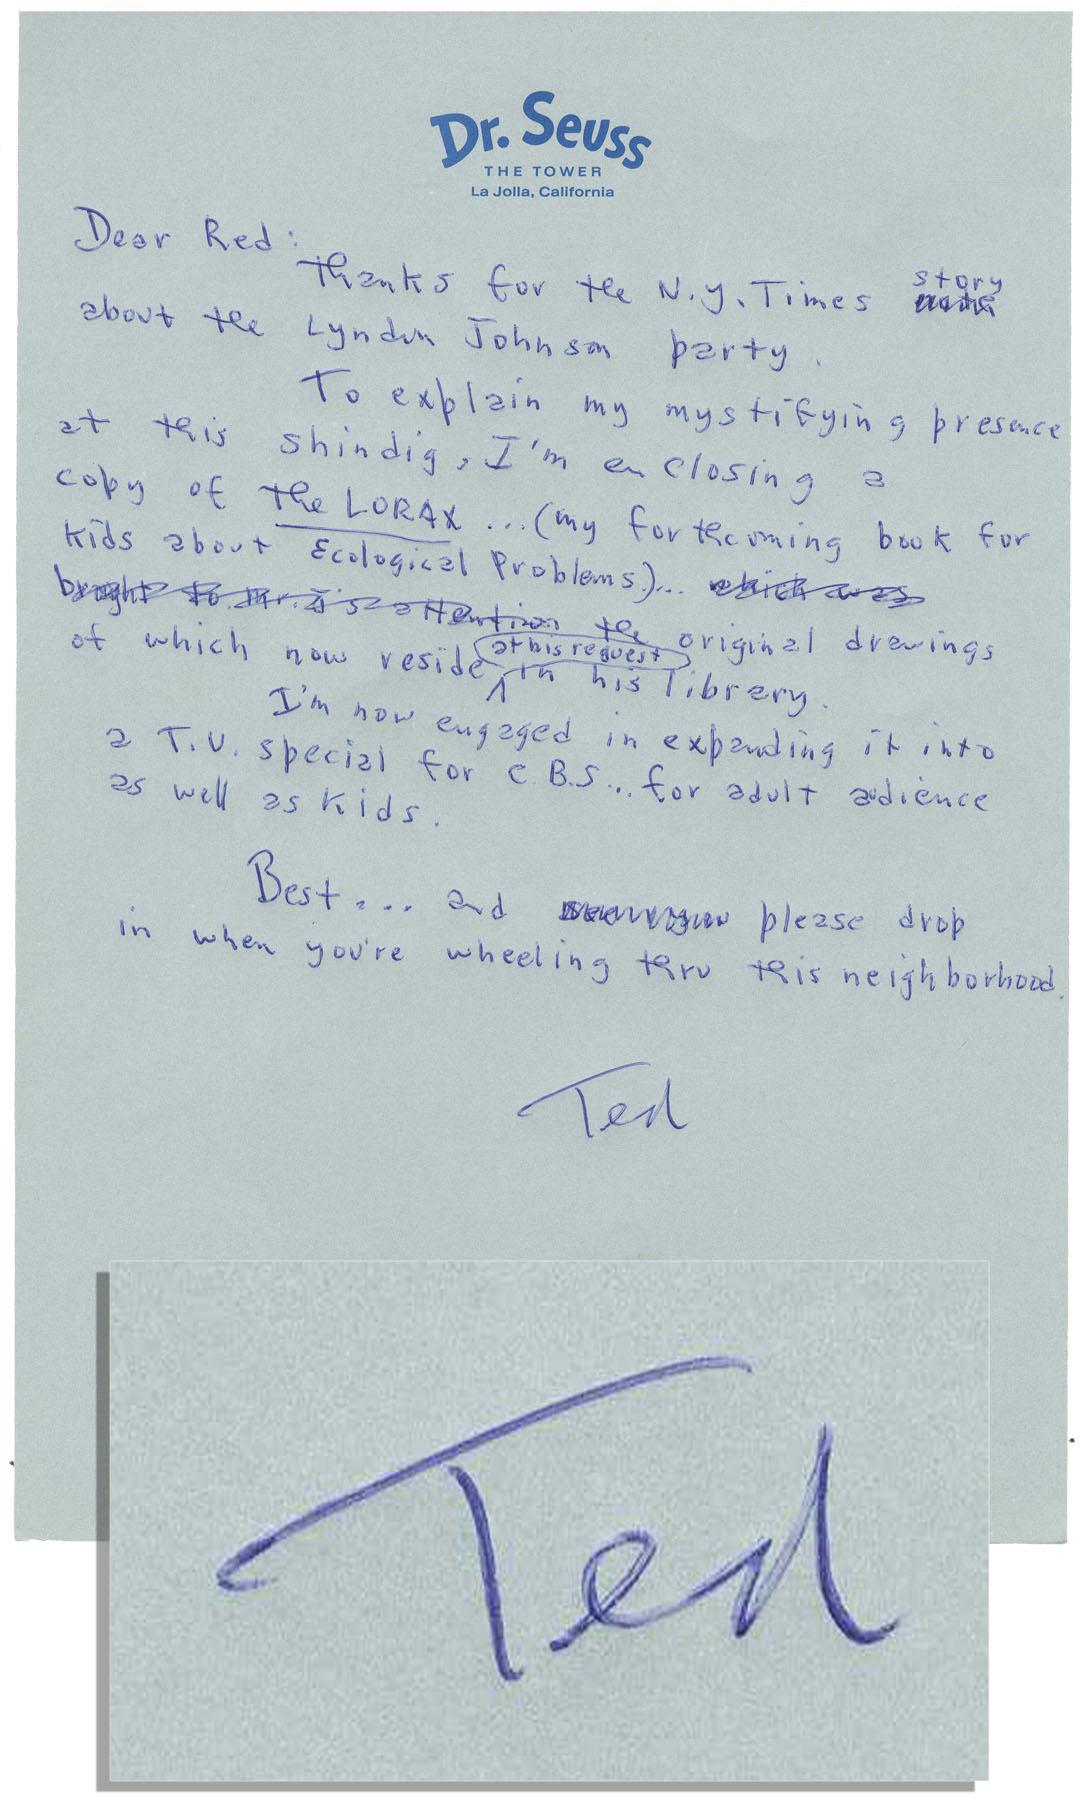 Dr. Seuss
THE TOWER
La Jolla, California
Dear Red:
Thanks for the N.Y. Times story
about the Lyndon Johnson party.
To explain my mystifying presence
at this shindig, I'm enclosing a
copy of The LORAX ... (my forthcoming book for
kids about Ecological Problems.)... which was
brought to Mr. J's attention the original drawings
of which now reside at his request in his library.
I'm now engaged in expanding it into
a T.V. special for C.B.S... for adult audience
as well as kids.
Best... and please drop
in when you're wheeling thru this neighborhood.
Ted
Ted